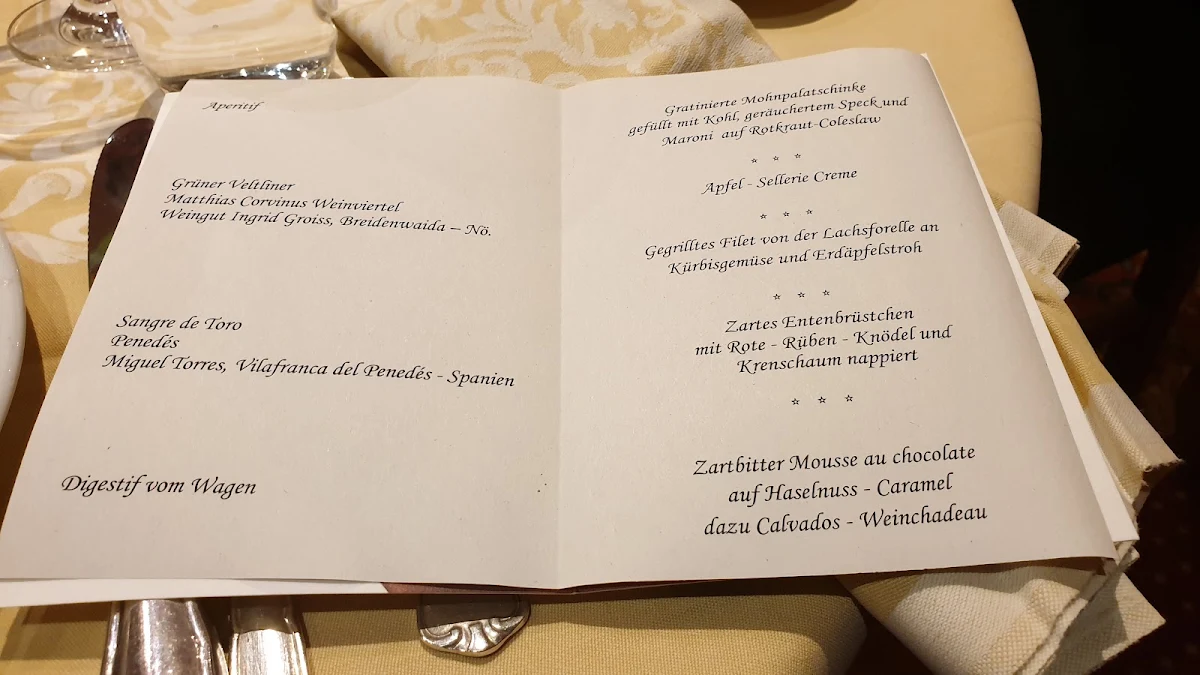 Aperitif
Grüner Veltliner
Matthias Corvinus Weinviertel
Weingut Ingrid Groiss, Breidenwaida – Nö.
Sangre de Toro
Penedés
Miguel Torres, Vilafranca del Penedés - Spanien
Digestif vom Wagen
Gratinierte Mohnpalatschinke
gefüllt mit Kohl, geräuchertem Speck und
Maroni auf Rotkraut-Coleslaw
* * *
Apfel - Sellerie Creme
* * *
Gegrilltes Filet von der Lachsforelle an
Kürbisgemüse und Erdäpfelstroh
* * *
Zartes Entenbrüstchen
mit Rote - Rüben - Knödel und
Krenschaum nappiert
* * *
Zartbitter Mousse au chocolate
auf Haselnuss - Caramel
dazu Calvados - Weinchadeau